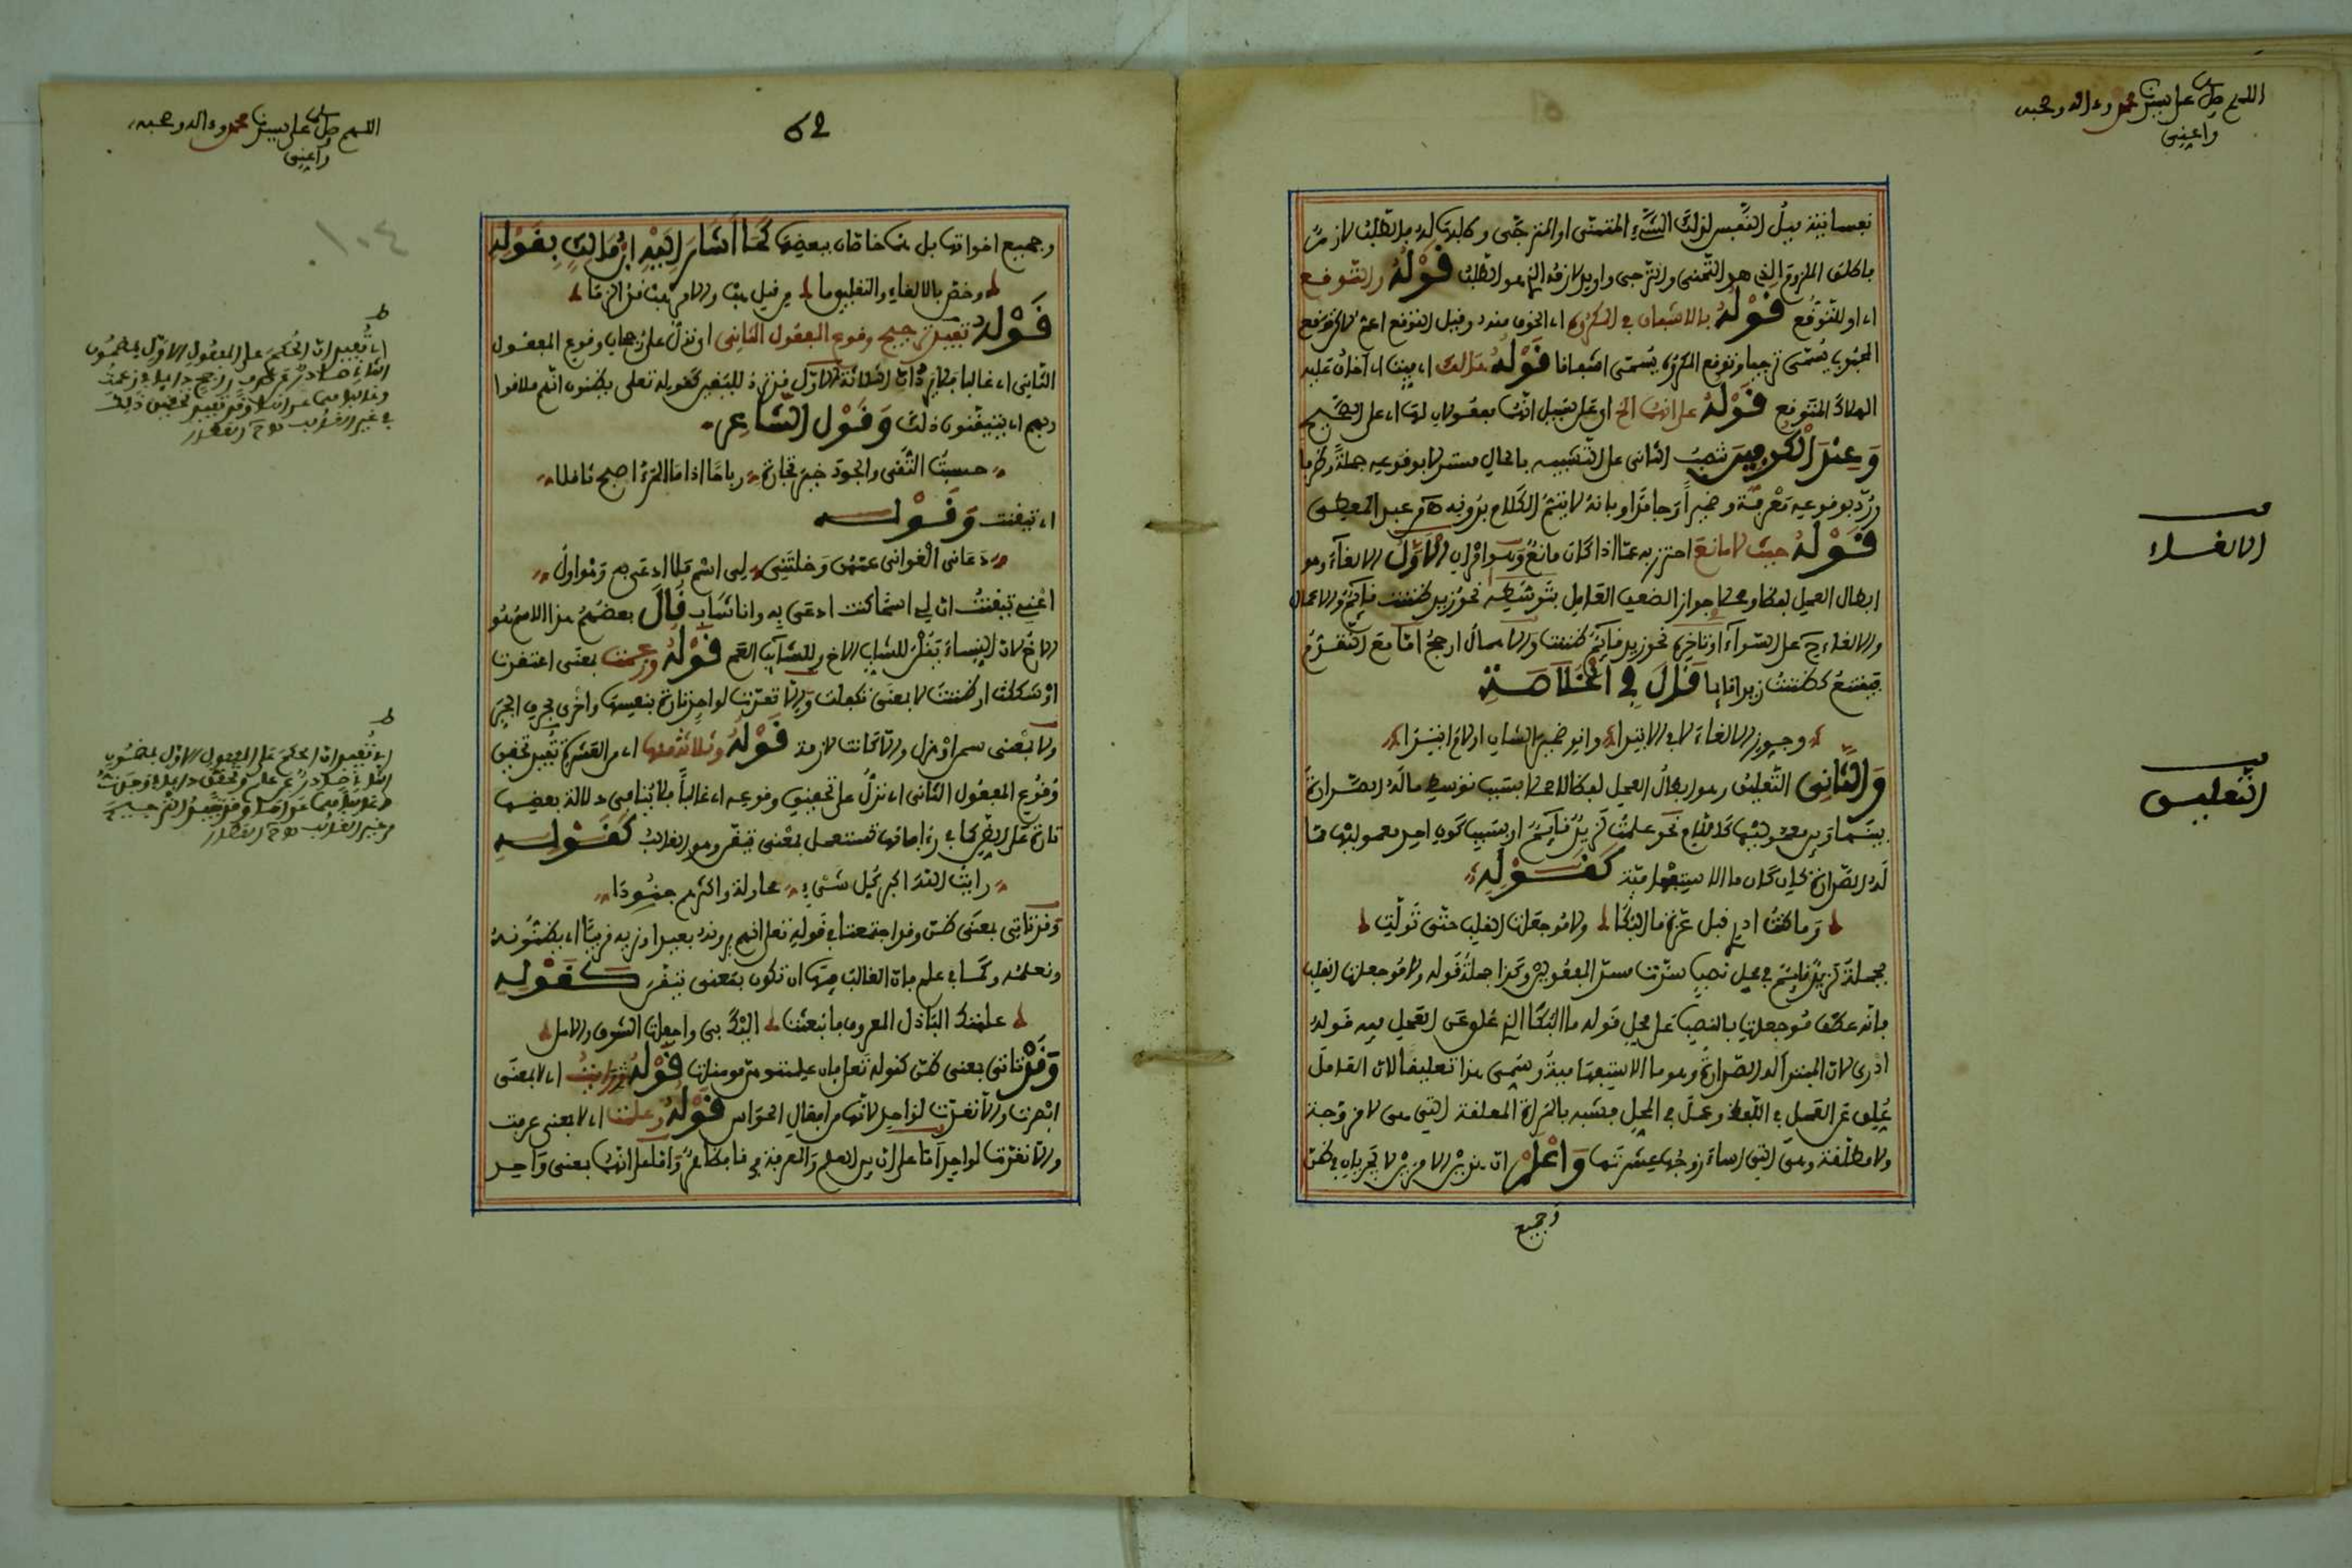 اللهم صل على سيدنا محمد وءاله وصحبه
وأعني
نفسانية ميل النفس لذلك الشيء المتمنى او المترجى وكلبت له بلا تطلب لازم
باطلق الملزوم الذي هو التمني والترجي واريد لازمه الذي هو الطلب قَوْلُهُ والتوقع
اي او للتوقع قَوْلُهُ بالاشفاق في المكروه اي الخوف منه وقيل التوقع اعم لان توقع
المحبوب يُسمى ترجيا وتوقع المكروه يُسمى اشفاقا قَوْلُهُ هالك اي ميت اي اخاف عليه
الهلاك المتوقع قَوْلُهُ على انهما الخ او على سبيل انهما مفعولان لها اي على الصحيح
وَعِنْدَ الْكُوفِيِّينَ نصب الثاني على التشبيه بالحال مستدلا بوقوعه جملة وظرفا
ورُدّ بوقوعه معرفة وضميرا وجامدا وبانه لا يتم الكلام بدونه
قَوْلُهُ حيث لا مانع احترز به عما اذا كان مانع وهو امران الْأَوَّلُ الالغاء وهو
ابطال العمل لفظا ومحلا جوازا لضعف العامل بتوسطه نحو زيد ظننت قائم والاعمال
والالغاء ح على السواء او تاخره نحو زيد قائم ظننت والاهمال ارجح اما مع التقدم
فيمتنع كظننت زيدا قائما قَالَ فِي الْخُلَاصَة
وجوز الالغاء لا في الابتدا وانو ضمير الشان او لام ابتدا
وَالثَّانِي التعليق وهو ابطال العمل لفظا لا محلا بسبب توسط ما له الصدارة
بينها وبين معموليها كاللام نحو علمت لزيد قائم او بسبب كون احد معموليها مما
له الصدارة كان كان ما الاستفهامية كَقَوْلِهِ
وما كنت ادري قبل عزة ما البكا ولا موجعات القلب حتى تولت
فجملة لزيد قائم في محل نصب سدت مسد المفعولين وكذا جملة قوله ولا موجعات القلب
بانه عطف موجعات بالنصب على محل قوله ما البكا الذي علق عن العمل فيه قوله
ادرى لان المبتدا له الصدارة وهو ما الاستفهامية وسمي هذا تعليقا لان العامل
علق عن العمل في اللفظ وعمل في المحل فشبه بالمراة المعلقة التي هي لا مزوجة
ولا مطلقة وهي التي اساء زوجها عشرتها وَاعْلَمْ ان هذين الامرين لا يجريان في ظن
وجميع
الالغاء
التعليق
اللهم صل على سيدنا محمد وءاله وصحبه
وأعني
52
١٠٤
وجميع اخواتها بل هما خاصان ببعضها كَمَا أَشَارَ إِلَيْهِ ابْنُ مَالِكٍ بِقَوْلِهِ
وخص بالالغاء والتعليق ما من قبل هب والامر هب قد الزما
قَوْلُهُ تفيد ترجيح وقوع المفعول الثاني اي تدل على رجحان وقوع المفعول
الثاني اي غالبا فلان ذات الثلاثة الاول قد ترد لليقين كقوله تعلى يظنون انهم ملاقوا
ربهم اي يتيقنون ذلك وَقَوْلِ الشَّاعِرِ
حسبت التقى والجود خير تجارة رباحا اذا ما المرء اصبح ثاقلا
اي تيقنت وَقَوْلِهِ
دعاني الغواني عمهن وخلتني لي اسم فلا ادعى به وهو اول
اعني تيقنت ان لي اسما كنت ادعى به وانا شاب قَالَ بعضهم هذا الاسم هو
الاخ لان النساء يقلن للشاب الاخ وللشايب العم قَوْلُهُ وزعمت بمعنى اعتقدت
او شككت او ظننت لا بمعنى تكفلت والا تعدت لواحد تارة بنفسها واخرى بحرف الجر
ولا بمعنى سمن او هزل والا كانت لازمة قَوْلُهُ وثلاثة منها اي من العشرة تفيد تحقيق
وقوع المفعول الثاني اي تدل على تحقيق وقوعه اي غالبا فلا ينافي دلالة بعضها
تارة على الظن كما في رءا فانها تستعمل بمعنى تيقن وهو الغالب كَقَوْلِهِ
رايت الله اكبر كل شيء محاولة واكثرهم جنودا
وقد تاتي بمعنى ظن وقد اجتمعتا في قوله تعلى انهم يرونه بعيدا ونريه قريبا اي يظنونه
ونعلمه وكما في علم فان الغالب فيها ان تكون بمعنى تيقن كَقَوْلِهِ
علمتك الباذل المعروف فانبعثت اليك بي واجفات الشوق والامل
وَقَدْ تاتي بمعنى ظن كقوله تعلى فان علمتموهن مومنات قَوْلُهُ ورايت اي لا بمعنى
ابصرت والا تعدت لواحد لانها من افعال الحواس قَوْلُهُ وعلمت اي لا بمعنى عرفت
والا تعدت لواحد اما على ان بين العلم والمعرفة فرقا فظاهر واما على انهما بمعنى واحد
ط
اي تفيد ان الحكم على المفعول الاول بمضمون
ط
اي تفيد ان الحكم على المفعول الاول بمضمون